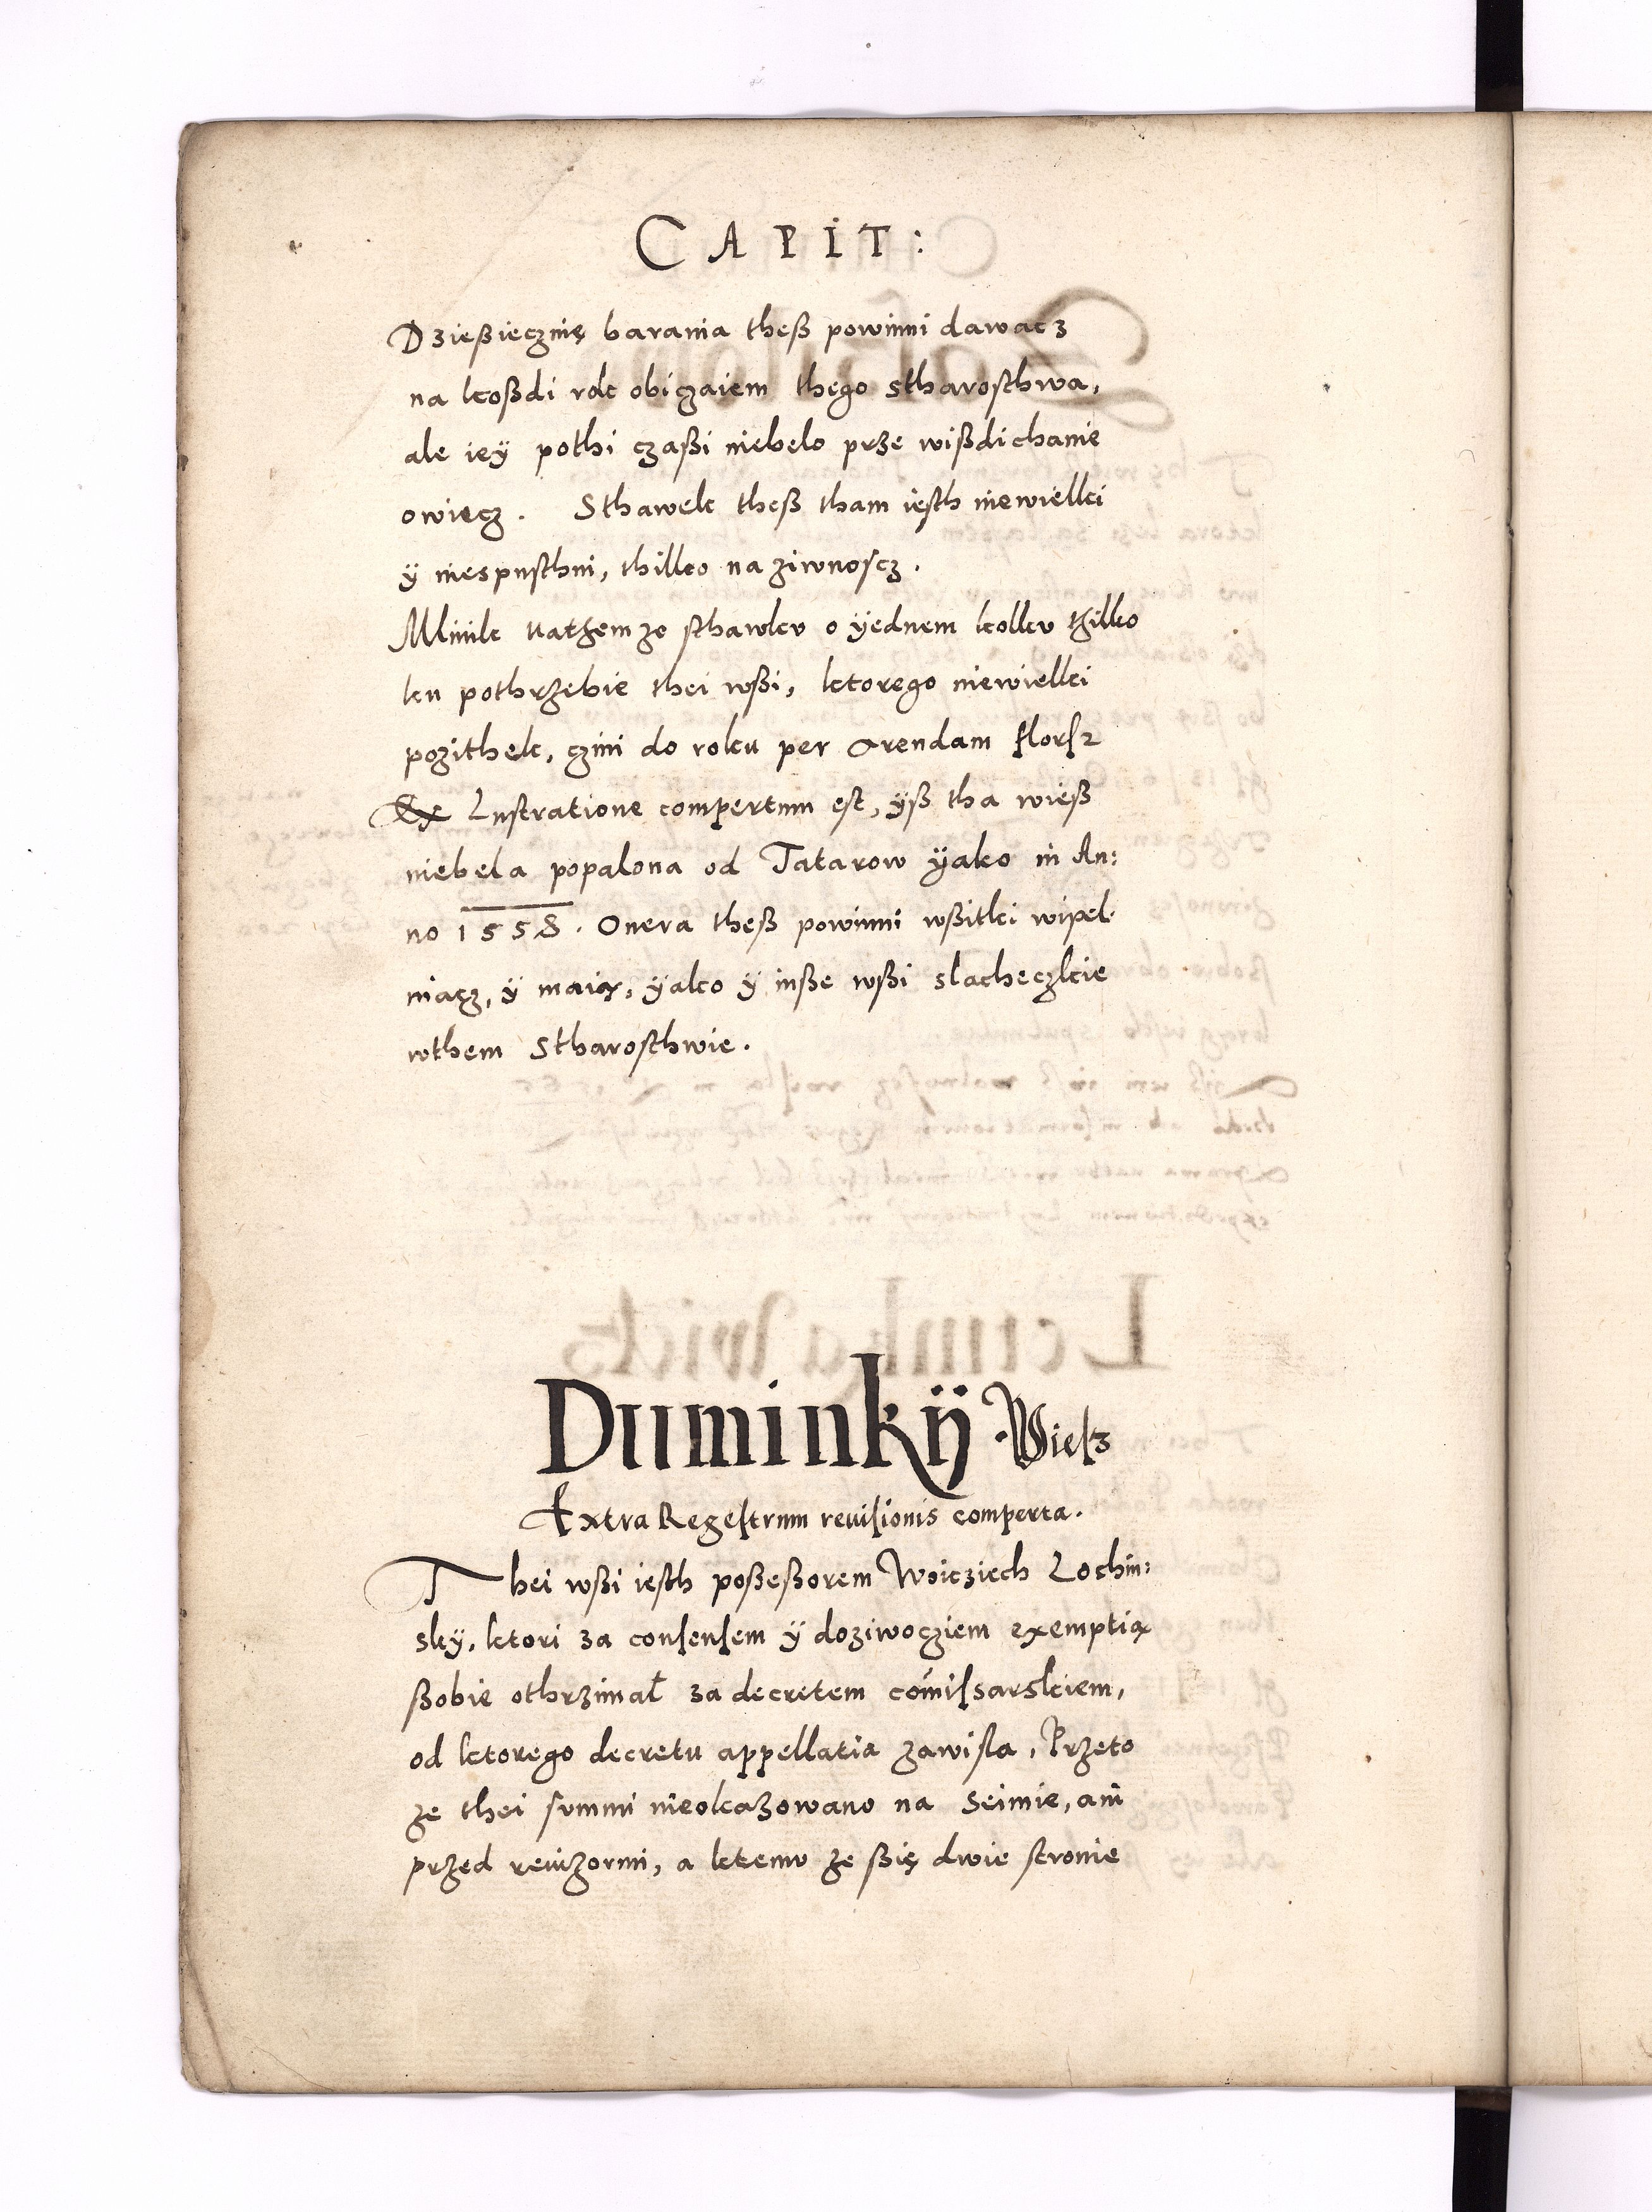 CAPIT:
Dzießiecznię barania theß powinni dawacz
na koßdi rok obiczaiem thego stharosthwa,
ale iey pothi czaßi niebelo prze wißdichanie
owiecz. Sthawek theß tham iesth niewielki
ÿ niespusthni, thilko na ziwnoscz.
Mlinik na themze sthawku o ÿednem kolku thilko
ku pothrzebie thei wßi, ktorego niewielki
pozithek, czini do roku per Arendam flor 2
Ex Lustratione compertum est, ÿß tha wieß
niebela popalona od Tatarow ÿako in An:
no 1558. Onera theß powinni wßitki wipel
niacz, ÿ maią, ÿako ÿ inße wßi slacheczkie
wthem Stharosthwie.
Duminkÿ Wieß
Extra Regestrum reuisionis comperta.
Thei wßi iesth poßeßorem Woiciech Lochin:
skÿ, ktori za consensem ÿ doziwocziem exemptią
ßobie othrzimał za decretem comissarskiem,
od ktorego decretu appellatia zawisla, Przeto
ze thei summi nieokazowano na Seimie, ani
przed reuizormi, a ktemu ze ßię dwie stronie